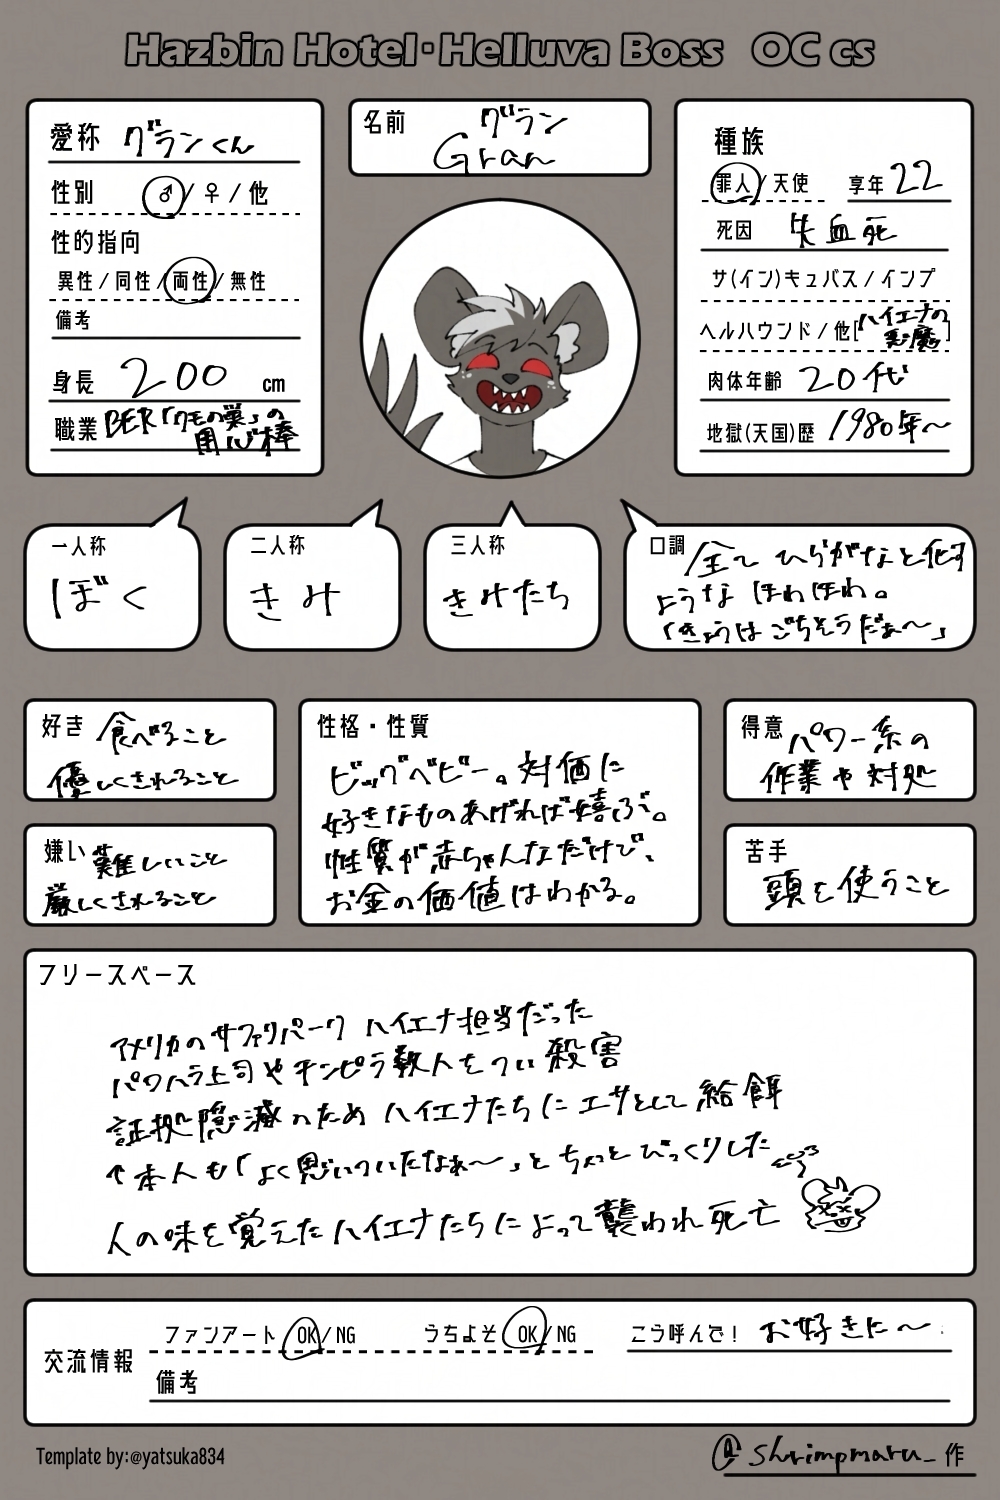 Hazbin Hotel・Helluva Boss OC cs
愛称 グランくん
性別 ♂/♀/他
性的指向
異性/同性/両性/無性
備考
身長 200 cm
職業 BER「クモの巣」の
用心棒
名前 グラン
Gran
種族
罪人/天使 享年 22
死因 失血死
サ(イン)キュバス/インプ
ヘルハウンド/他[ハイエナの
悪魔]
肉体年齢 20代
地獄(天国)歴 1980年〜
一人称
ぼく
二人称
きみ
三人称
きみたち
口調 全てひらがなと化す
ような ほわほわ。
「きょうはごちそうだぁ〜」
好き 食べること
優しくされること
嫌い 難しいこと
厳しくされること
性格・性質
ビッグベビー。対価に
好きなものあげれば喜ぶ。
性質が赤ちゃんなだけで、
お金の価値はわかる。
得意 パワー系の
作業や対処
苦手
頭を使うこと
フリースペース
アメリカのサファリパーク ハイエナ担当だった
パワハラ上司やチンピラ数人をつい殺害
証拠隠滅のため ハイエナたちに エサとして給餌
↑本人も「よく思いついたなぁ〜」と ちょっとびっくりした
人の味を覚えたハイエナたちによって襲われ死亡
交流情報
ファンアート OK/NG うちよそ OK/NG こう呼んで! お好きに〜
備考
Template by:@yatsuka834
@shrimpmaru_作